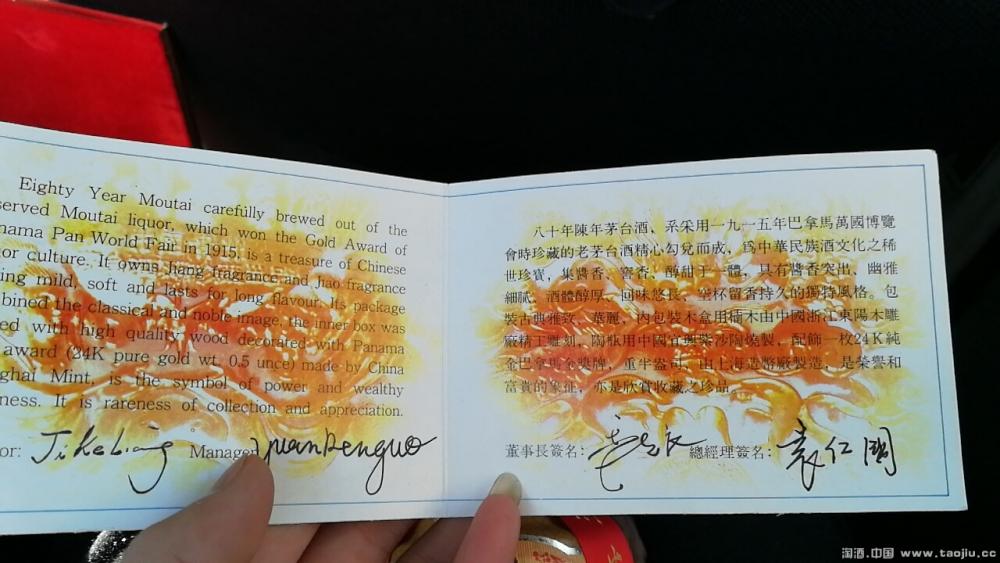 Eighty Year Moutai carefully brewed out of the
served Moutai liquor, which won the Gold Award of
nama Pan World Fair in 1915, is a treasure of Chinese
or culture. It owns Jiang fragrance and Jiao fragrance
ing mild, soft and lasts for long flavour. Its package
bined the classical and noble image, the inner box was
ed with high quality wood decorated with Panama
award (24K pure gold wt 0.5 unce) made by China
ghai Mint, is the symbol of power and wealthy
ness. It is rareness of collection and appreciation.
or: Ji Kebiang Manager Yuan Renguo
八十年陳年茅台酒、系采用一九一五年巴拿馬萬國博覽
會時珍藏的老茅台酒精心勾兌而成，爲中華民族酒文化之稀
世珍寶，集醬香、窖香、醇甜于一體，具有醬香突出、幽雅
細膩、酒體醇厚、回味悠長、空杯留香持久的獨特風格。包
裝古典雅致、華麗，内包裝木盒用楠木由中國浙江東陽木雕
廠精工雕刻，陶瓶用中國宜興紫沙陶燒製，配飾一枚24K純
金巴拿馬金獎牌，重半盎司，由上海造幣廠製造，是榮譽和
富貴的象征，亦是欣賞收藏之珍品。
董事長簽名： 總經理簽名：袁仁國
淘酒.中国 www.taojiu.cc